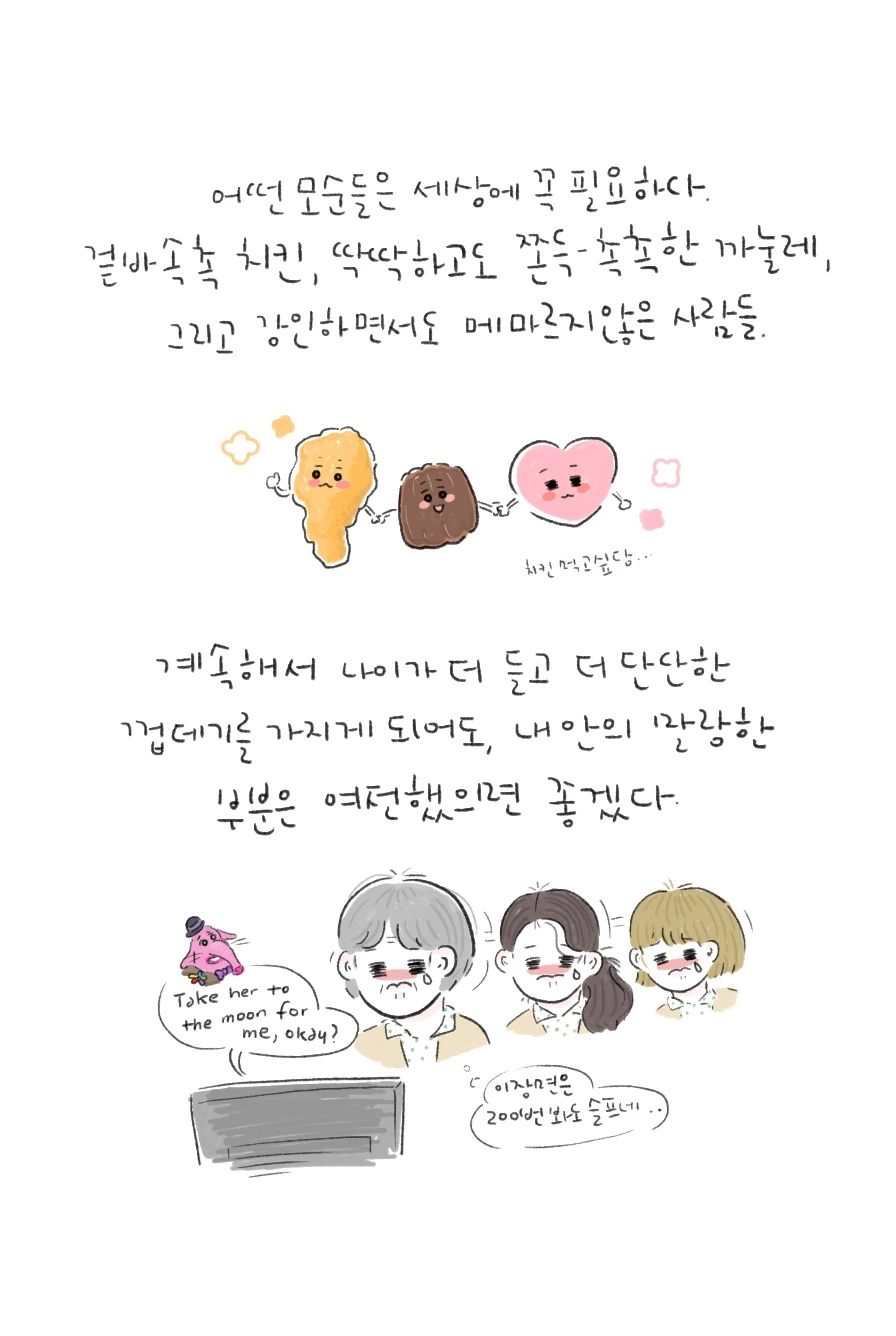 어떤 모순들은 세상에 꼭 필요하다.
겉바속촉 치킨, 딱딱하고도 쫀득-촉촉한 까눌레,
그리고 강인하면서도 메마르지않은 사람들.
치킨먹고싶담...
계속해서 나이가 더 들고 더 단단한
껍데기를 가지게 되어도, 내 안의 말랑한
부분은 여전했으면 좋겠다.
Take her to
the moon for
me, okay?
이장면은
200번 봐도 슬프네..